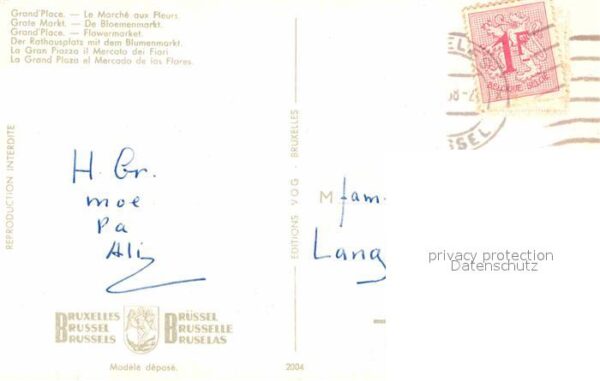 Grand'Place. — Le Marché aux Fleurs.
Grote Markt. — De Bloemenmarkt.
Grand'Place. — Flowermarket.
Der Rathausplatz mit dem Blumenmarkt.
La Gran Piazza il Mercato dei Fiori
La Grand Plaza el Mercado de las Flores.
1F
BELGIQUE-BELGIË
SSEL
REPRODUCTION INTERDITE
H. Gr.
moe
pa
EDITIONS VOG - BRUXELLES
M fam.
Lang
privacy protection
Datenschutz
BRUXELLES BRÜSSEL
BRUSSEL BRUSSELLE
BRUSSELS BRUSELAS
Modèle déposé.
2004